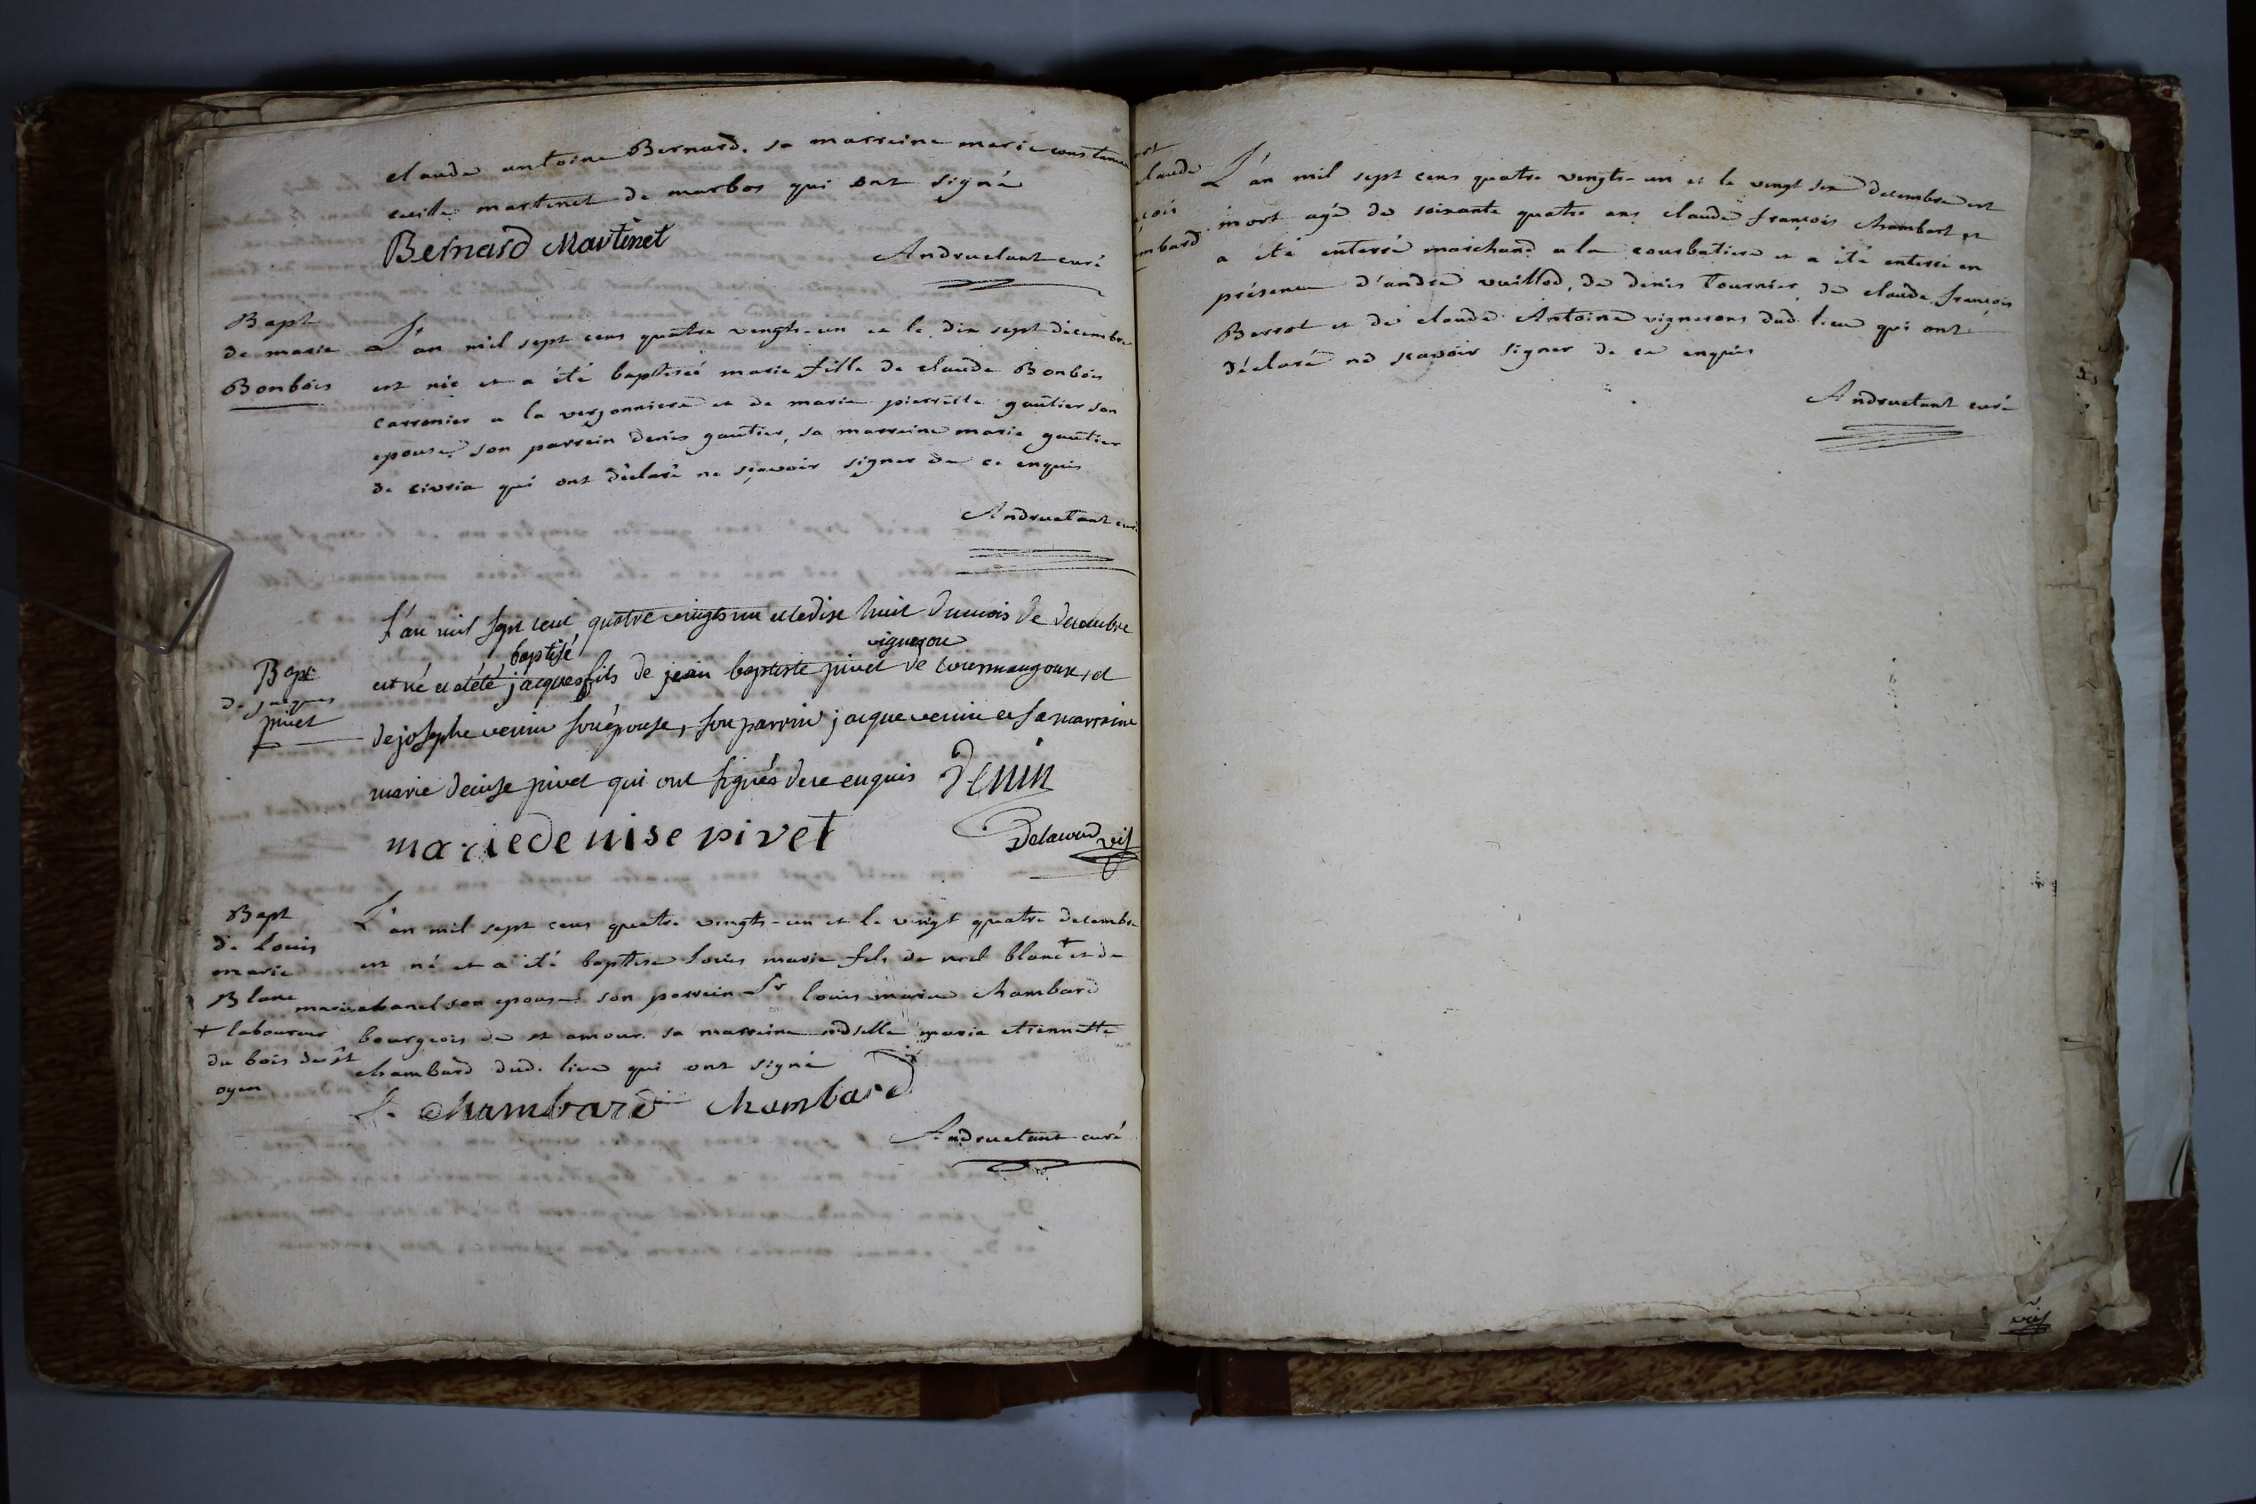 claude antoine Bernard. sa marreine marie constance
cecille martinet de marbos qui ont signé
Bernard Martinet
Andruetant curé
Bapt
de marie
Bonbois
L'an mil sept cens quatre vingts-un et le dix sept decembre
est née et a été baptiseé marie fille de claude Bonbois
carronier a la verjonniere et de marie pierrette gautier son
epouse. son parrein denis gautier, sa marreine marie gautier
de civria qui ont déclaré ne sçavoir signer de ce enquis
Andruetant curé
Bapt
de jacques
pivet
L'an mil sept cent quatre vingts un et le dixe huit du mois de decembre
baptisé vigneron
est né et a été jacques fils de jean baptiste pivet de courmangoux, et
de josephe venin son épouse, son parrin jacque venin et sa marraine
marie denise pivet qui ont signés de ce enquis Venin
marie denise pivet
Delacour vic
Bapt
de Louis
marie
Blanc
+ laboureur
du bois de st
oyen
L'an mil sept cens quatre vingts-un et le vingt quatre decembre
est né et a été baptisé Louis marie fils de noel blanc + et de
marie chanel son epouse son parrein Sr louis marie chambard
bourgeois de st amour. sa marreine mdselle marie etiennette
chambard dud. lieu qui ont signé
L. chambard chambard
Andruetant curé
claude
mbard
L'an mil sept cens quatre vingts-un et le vingt six decembre est
mort agé de soixante quatre ans claude françois chambart et
a été enterré marchand a la courbatiere et a été enterré en
présence d'andré vuillod, de denis Tournier, de claude françois
Berrot et de claude Antoine vignerons dud. lieu qui ont
déclaré ne scavoir signer de ce enquis
Andruetant curé